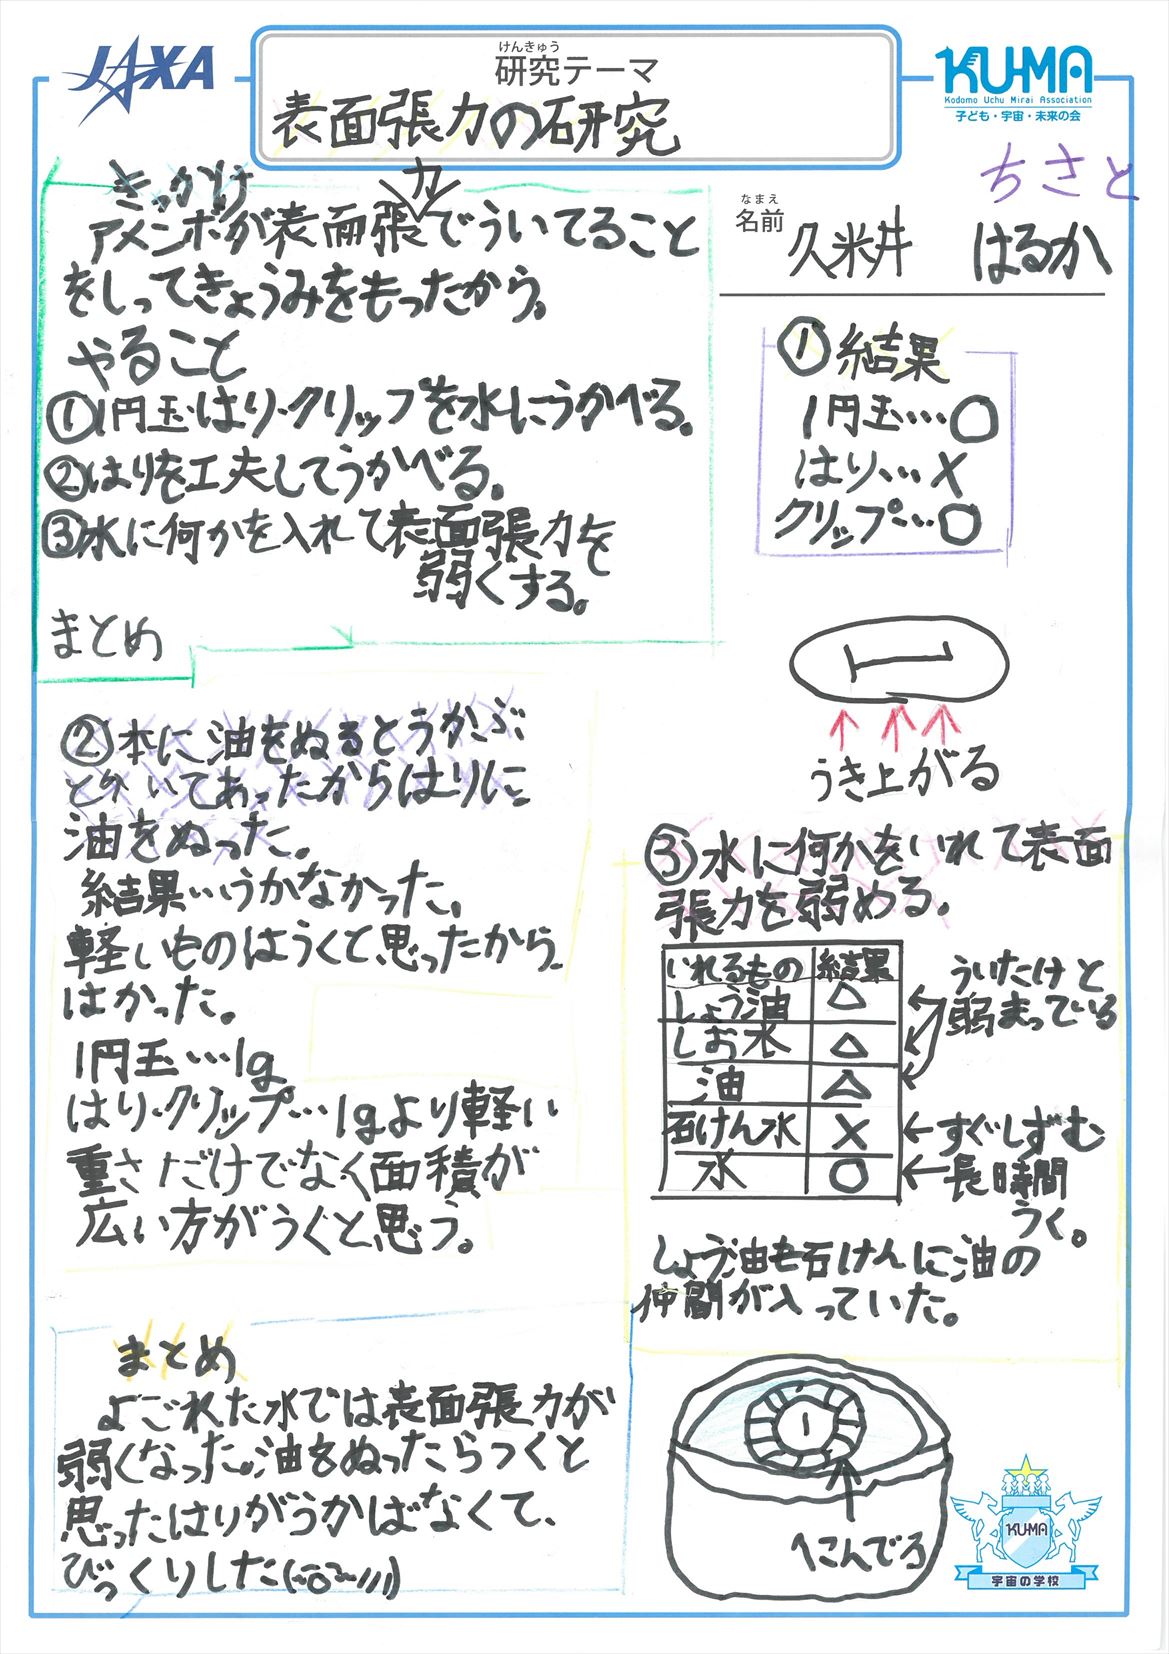 JAXA
けんきゅう
研究テーマ
表面張力の研究
KU-MA
Kodomo Uchu Mirai Association
子ども・宇宙・未来の会
ちさと
なまえ
名前
久米井 はるか
きっかけ
アメンボが表面張力でういてること
をしってきょうみをもったから。
やること
①1円玉・はり・クリップを水にうかべる。
②はりを工夫してうかべる。
③水に何かを入れて表面張力を
弱くする。
まとめ
①結果
1円玉…○
はり…×
クリップ…○
1
うき上がる
②本に油をぬるとうかぶ
とかいてあったからはりに
油をぬった。
結果…うかなかった。
軽いものはうくと思ったから
はかった。
1円玉…1g
はり・クリップ…1gより軽い
重さだけでなく面積が
広い方がうくと思う。
③水に何かをいれて表面
張力を弱める。
いれるもの 結果
しょう油 △
しお水 △
油 △
石けん水 ×
水 ○
ういたけど
弱まっている
すぐしずむ
長時間
うく。
しょう油も石けんに油の
仲間が入っていた。
まとめ
よごれた水では表面張力が
弱くなった。油をぬったらうくと
思ったはりがうかばなくて、
びっくりした
1
へこんでる
KU-MA
宇宙の学校